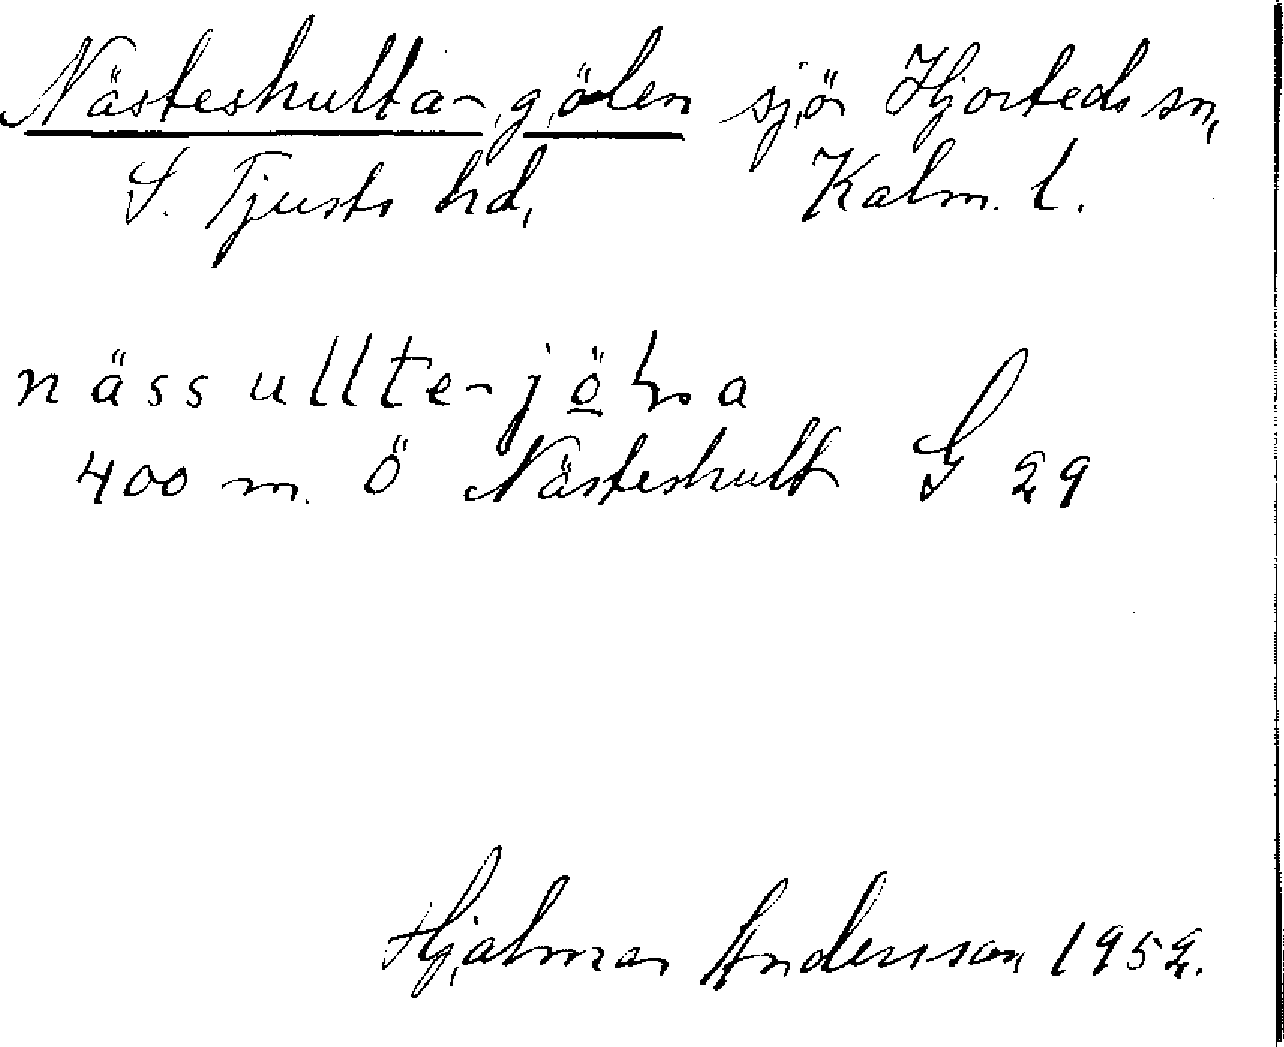 Nästeshulta-gölen sjö Hjorteds sn,
S. Tjusts hd, Kalm. l.
nässullte-jöḷṇa
400 m. Ö Nästeshult G 29
Hjalmar Andersson 1952.